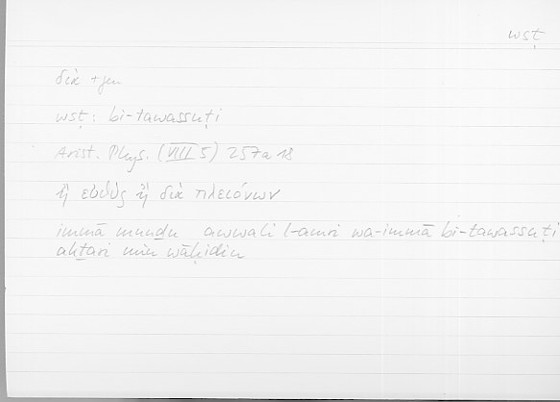 wsṭ
διὰ + gen
wsṭ: bi-tawassuṭi
Arist. Phys. (VIII 5) 257a 18
ἢ εὐθὺς ἢ διὰ πλειόνων
immā munḏu awwali l-amri wa-immā bi-tawassuṭi
akṯari min wāḥidin